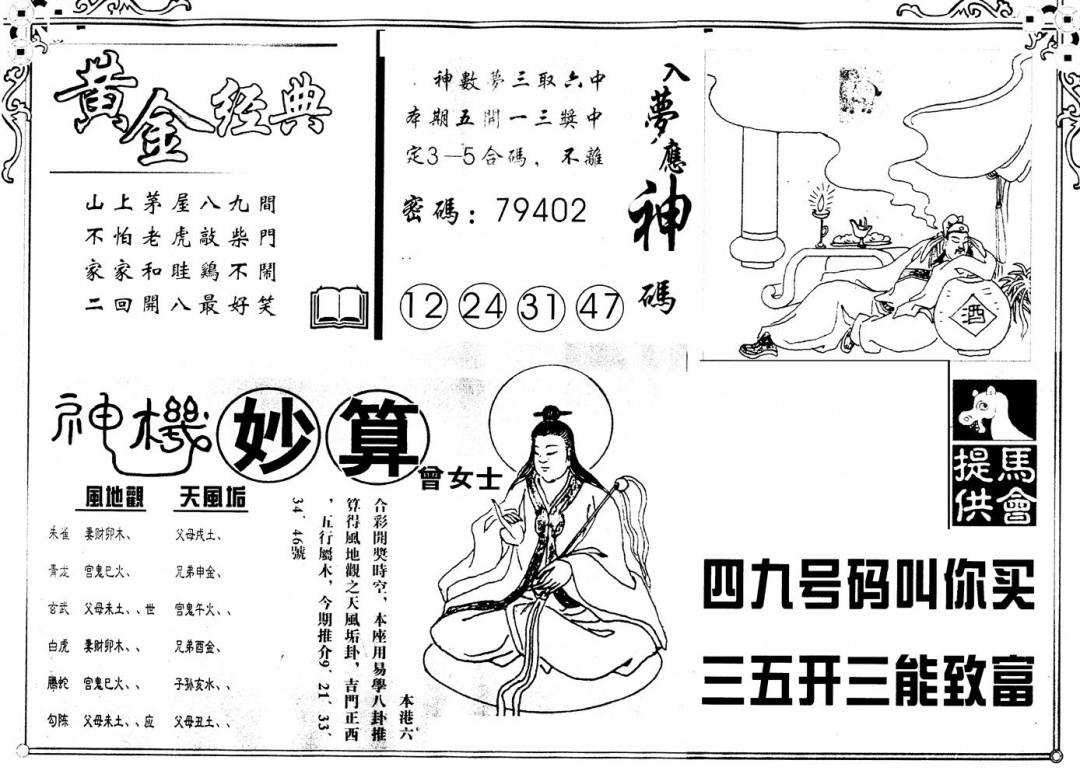 黄金经典
山上茅屋八九間
不怕老虎敲柴門
家家和哇鷄不鬧
二回開八最好笑
神數夢三取六中
本期五開一三獎中
定3—5合碼、不離
密碼：79402
12 24 31 47
入夢應神碼
酒
神機妙算
曾女士
風地觀 天風垢
朱雀 妻財卯木、 父母戌土、
青龙 宫鬼巳火、 兄弟申金、
玄武 父母未土、、世 宫鬼午火、、
白虎 妻財卯木、、 兄弟酉金、
騰蛇 宫鬼巳火、、 子孙亥水、、
勾陈 父母未土、、应 父母丑土、、
本港六
合彩開獎時空，本座用易學八卦推
算得風地觀之天風垢卦，吉門正西
，五行屬木，今期推介9、21、33、
34、46號
馬會
提供
四九号码叫你买
三五开三能致富